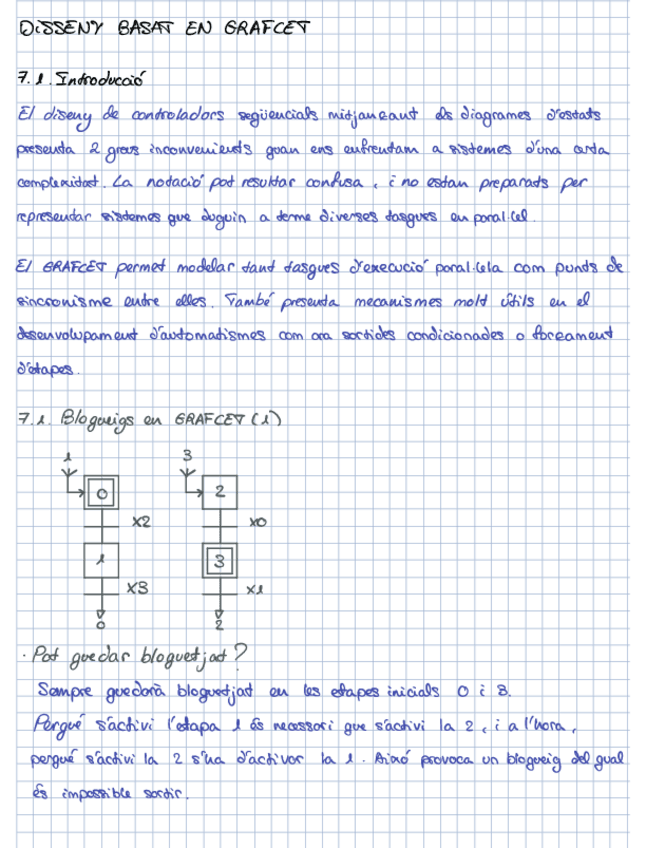 DISSENY BASAT EN GRAFCET
7.1. Introducció
El diseny de controladors seqüencials mitjançant els diagrames d'estats
presenta 2 grans inconvenients quan ens enfrentam a sistemes d'una certa
complexitat. La notació pot resultar confusa, i no estan preparats per
representar sistemes que duguin a terme diverses tasques en paral·lel.
El GRAFCET permet modelar tant tasques d'execució paral·lela com punts de
sincronisme entre elles. També presenta mecanismes molt útils en el
desenvolupament d'automatismes com ara sortides condicionades o forçament
d'etapes.
7.1. Bloqueigs en GRAFCET (1)
1 3
0 2
X2 X0
1 3
X3 X1
0 2
· Pot quedar bloquetjat?
Sempre quedarà bloquetjat en les etapes inicials 0 i 3.
Perquè s'activi l'etapa 1 és necessari que s'activi la 2, i a l'hora,
perquè s'activi la 2 s'ha d'activar la 1. Això provoca un bloqueig del qual
és impossible sortir.